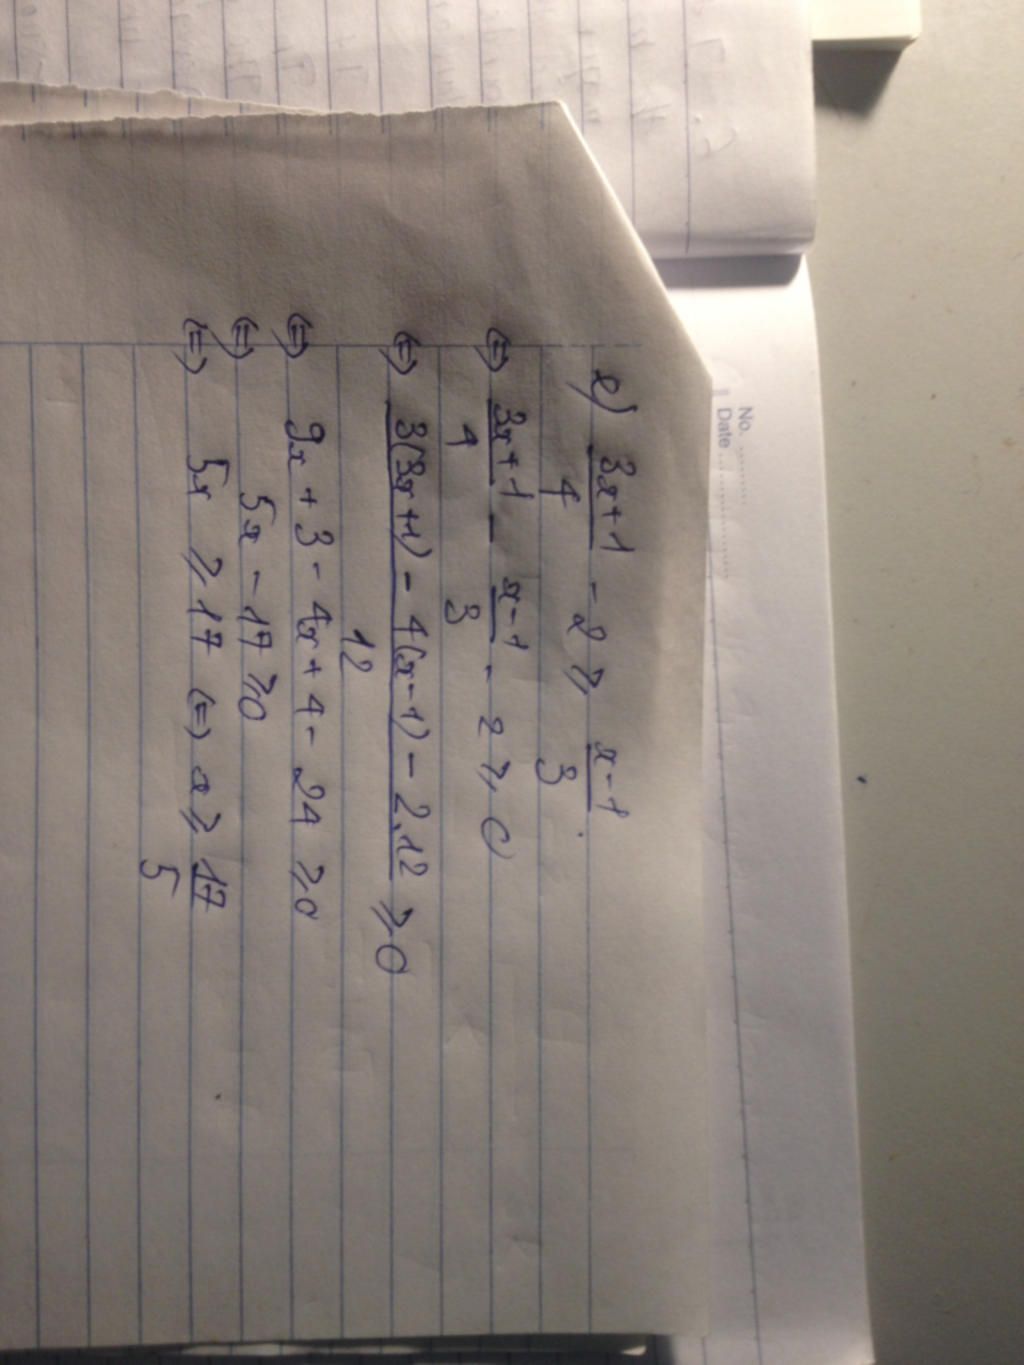 No. ............
Date ......................
e) (3x+1)/4 - 2 ⩾ (x-1)/3.
(=) (3x+1)/4 - (x-1)/3 - 2 ⩾ 0
(=) (3(3x+1) - 4(x-1) - 2.12)/12 ⩾ 0
(=) 9x + 3 - 4x + 4 - 24 ⩾ 0
(=) 5x - 17 ⩾ 0
(=) 5x ⩾ 17 (=) x ⩾ 17/5